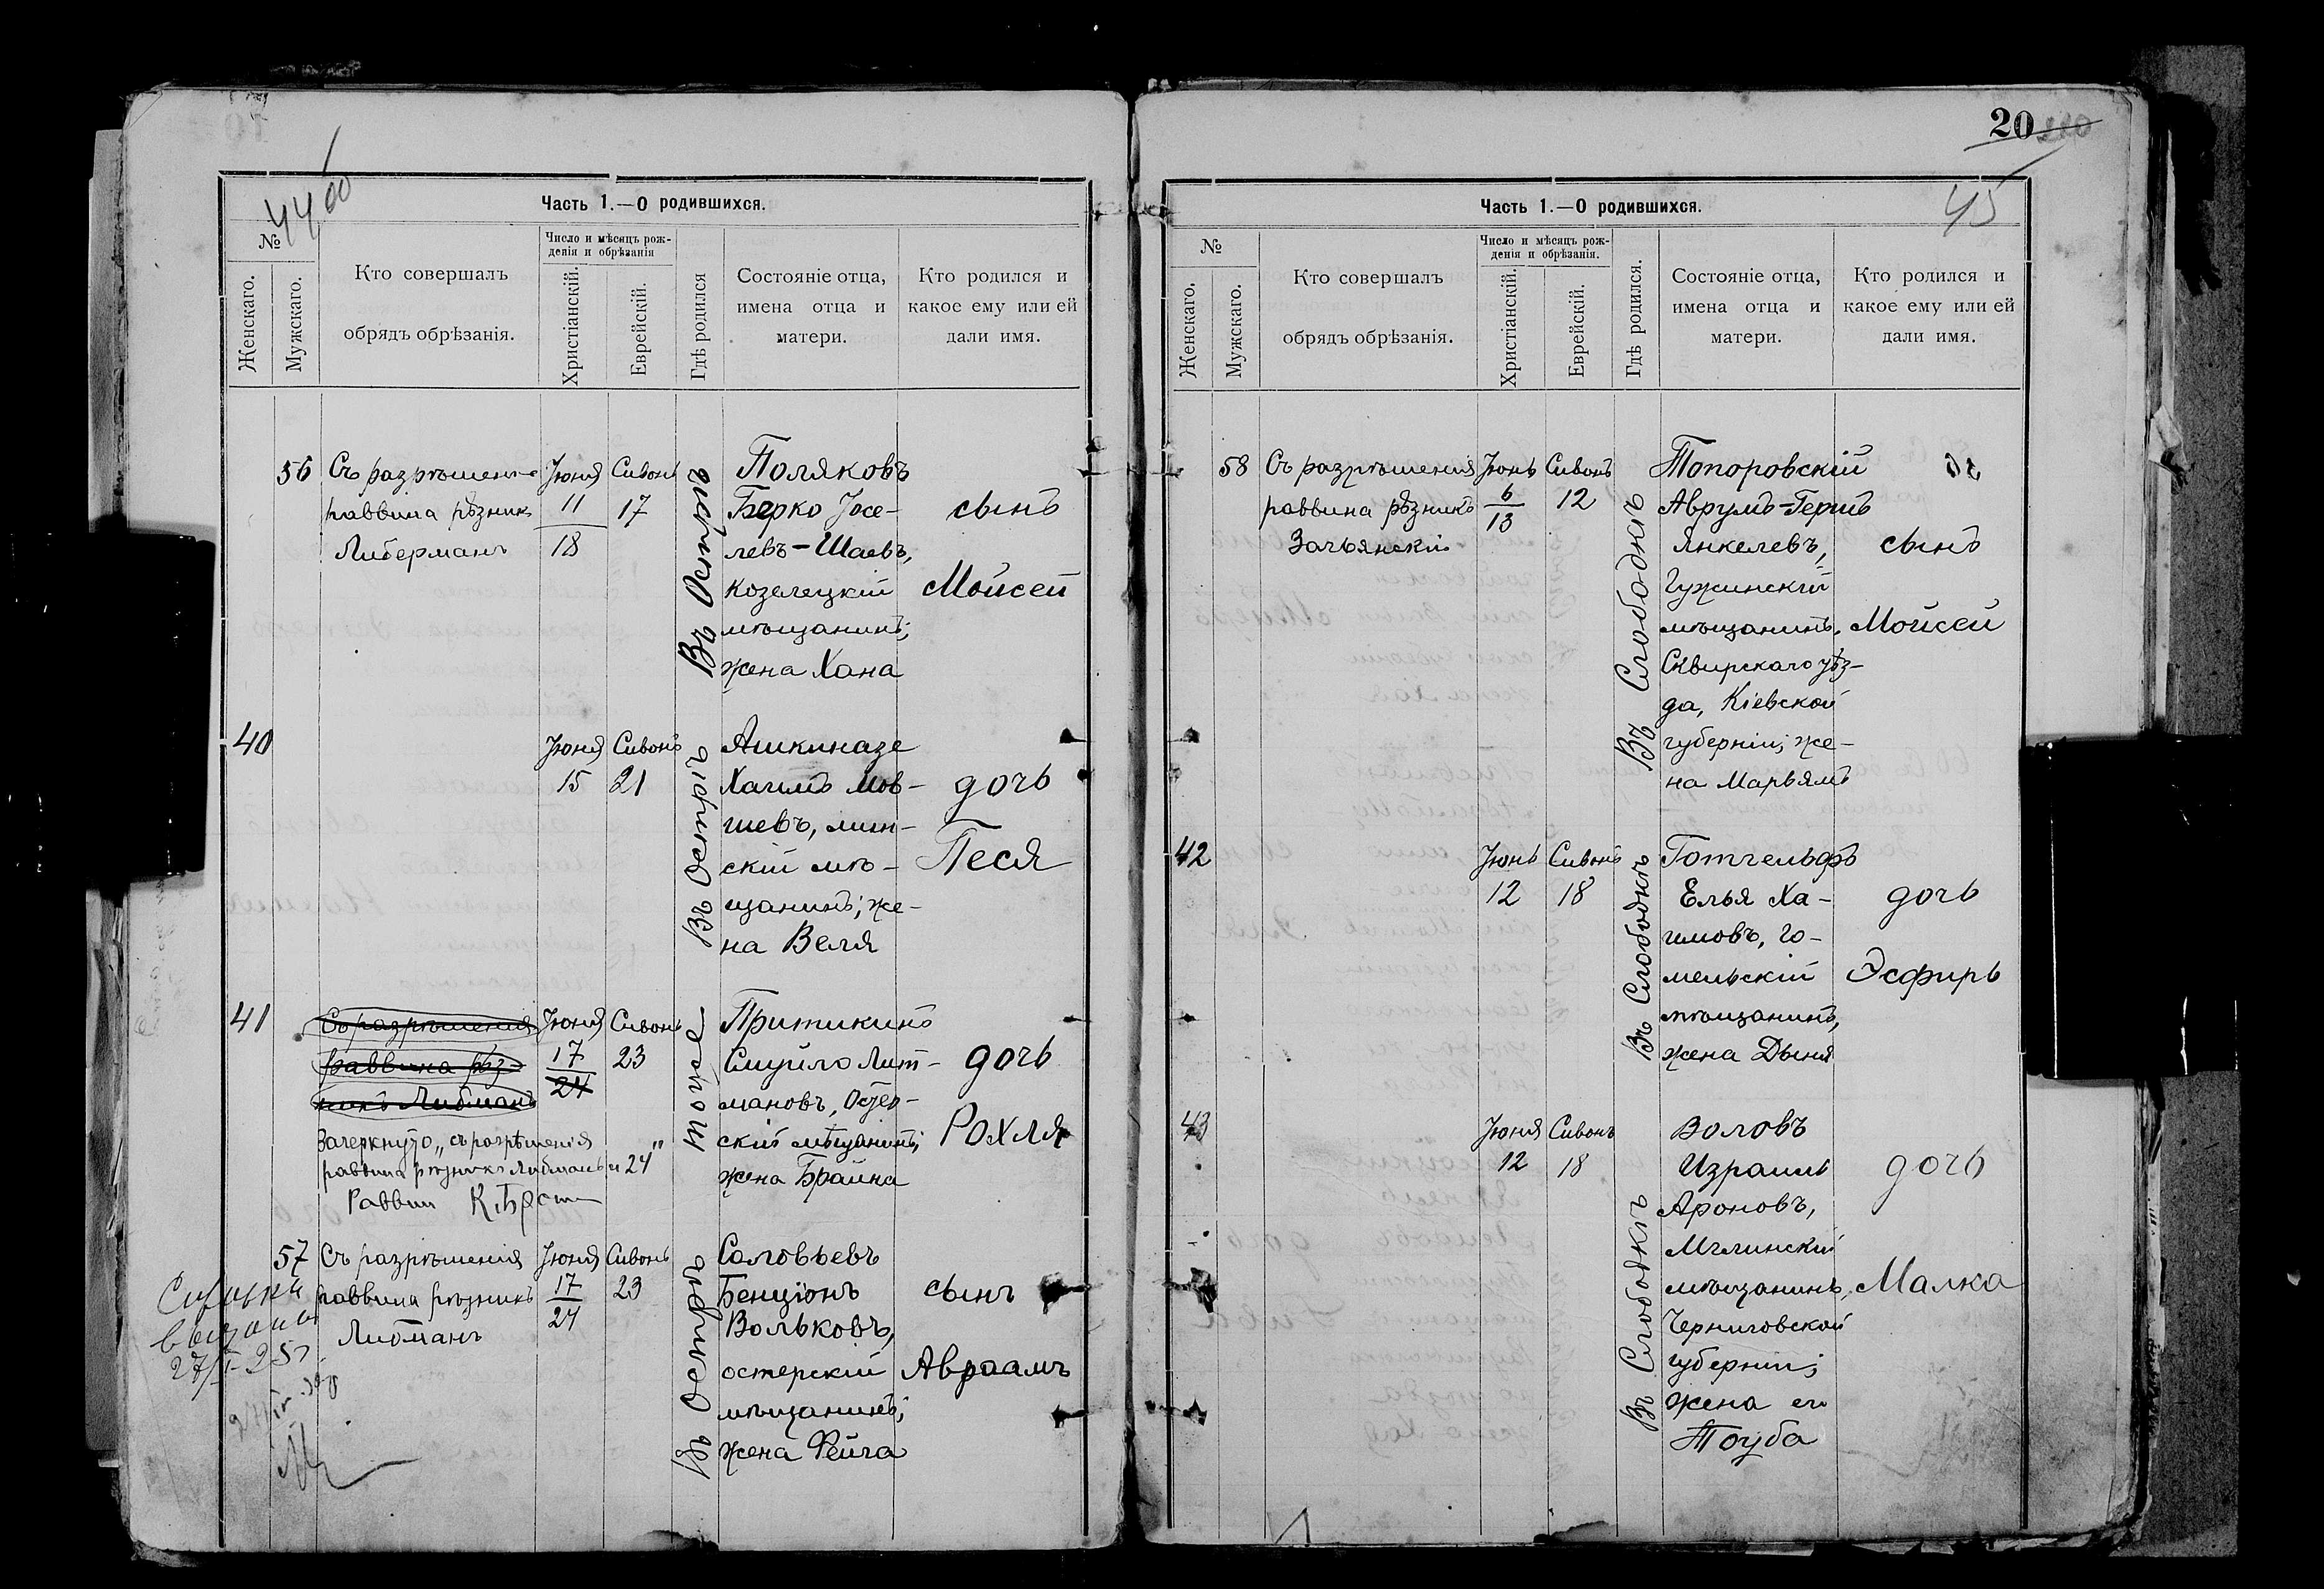 44
Часть 1.—О родившихся.
№
Женскаго.
Мужскаго.
Кто совершалъ
обрядъ обрѣзанія.
Число и мѣсяцъ рож-
денія и обрѣзанія
Христіанскій.
Еврейскій.
Гдѣ родился
Состояніе отца,
имена отца и
матери.
Кто родился и
какое ему или ей
дали имя.
56
Съ разрѣшен
раввина рѣзник
Либерманъ
Іюня
11
18
Сивонъ
17
Въ Острѣ
Поляковъ
Берко Іосе-
левъ-Шаевъ,
козелецкій
мѣщанинъ;
жена Хана
сынъ
Мойсей
40
Іюня
15
Сивонъ
21
Въ Острѣ
Ашкиназе
Хаимъ Мов-
шевъ, мин-
скій мѣ-
щанинъ; же-
на Веля
дочь
Песя
41
Съ разрѣшенія
раввина рѣз-
никъ Либманъ
Зачеркнуто „съ разрѣшенія
раввина рѣзникъ Либманъ и 24"
Раввин
Іюня
17
24
Сивонъ
23
Притикинъ
Смуйло Лит-
мановъ, Остер-
скій мѣщанинъ;
жена Брайна
дочь
Рохля
57
Съ разрѣшенія
раввина рѣзникъ
Либманъ
Іюня
17
24
Сивонъ
23
Въ Острѣ
Соловьевъ
Бенціонъ
Вольковъ,
остерскій
мѣщанинъ;
жена Фейга
сынъ
Авраамъ
выдана
20
45
Часть 1.—О родившихся.
№
Женскаго.
Мужскаго.
Кто совершалъ
обрядъ обрѣзанія.
Число и мѣсяцъ рож-
денія и обрѣзанія.
Христіанскій.
Еврейскій.
Гдѣ родился.
Состояніе отца,
имена отца и
матери.
Кто родился и
какое ему или ей
дали имя.
58
Съ разрѣшенія
раввина рѣзникъ
Іюнь
6
13
Сивонъ
12
Въ Слободкѣ
Топоровскій
Аврумъ-Гершъ
Янкелевъ,
мѣщанинъ,
Сквирскаго уѣз-
да, Кіевской
губерніи; же-
на Марьямъ
сынъ
Мойсей
42
Іюнь
12
Сивонъ
18
Въ Слободкѣ
Готгельфъ
Елья Ха-
имовъ, го-
мельскій
мѣщанинъ,
жена Дыня
дочь
Эсфирь
43
Іюня
12
Сивонъ
18
Въ Слободкѣ
Воловъ
Израиль
Ароновъ,
Мглинскій
мѣщанинъ,
Черниговской
губерніи;
жена его
Тоуба
дочь
Малка